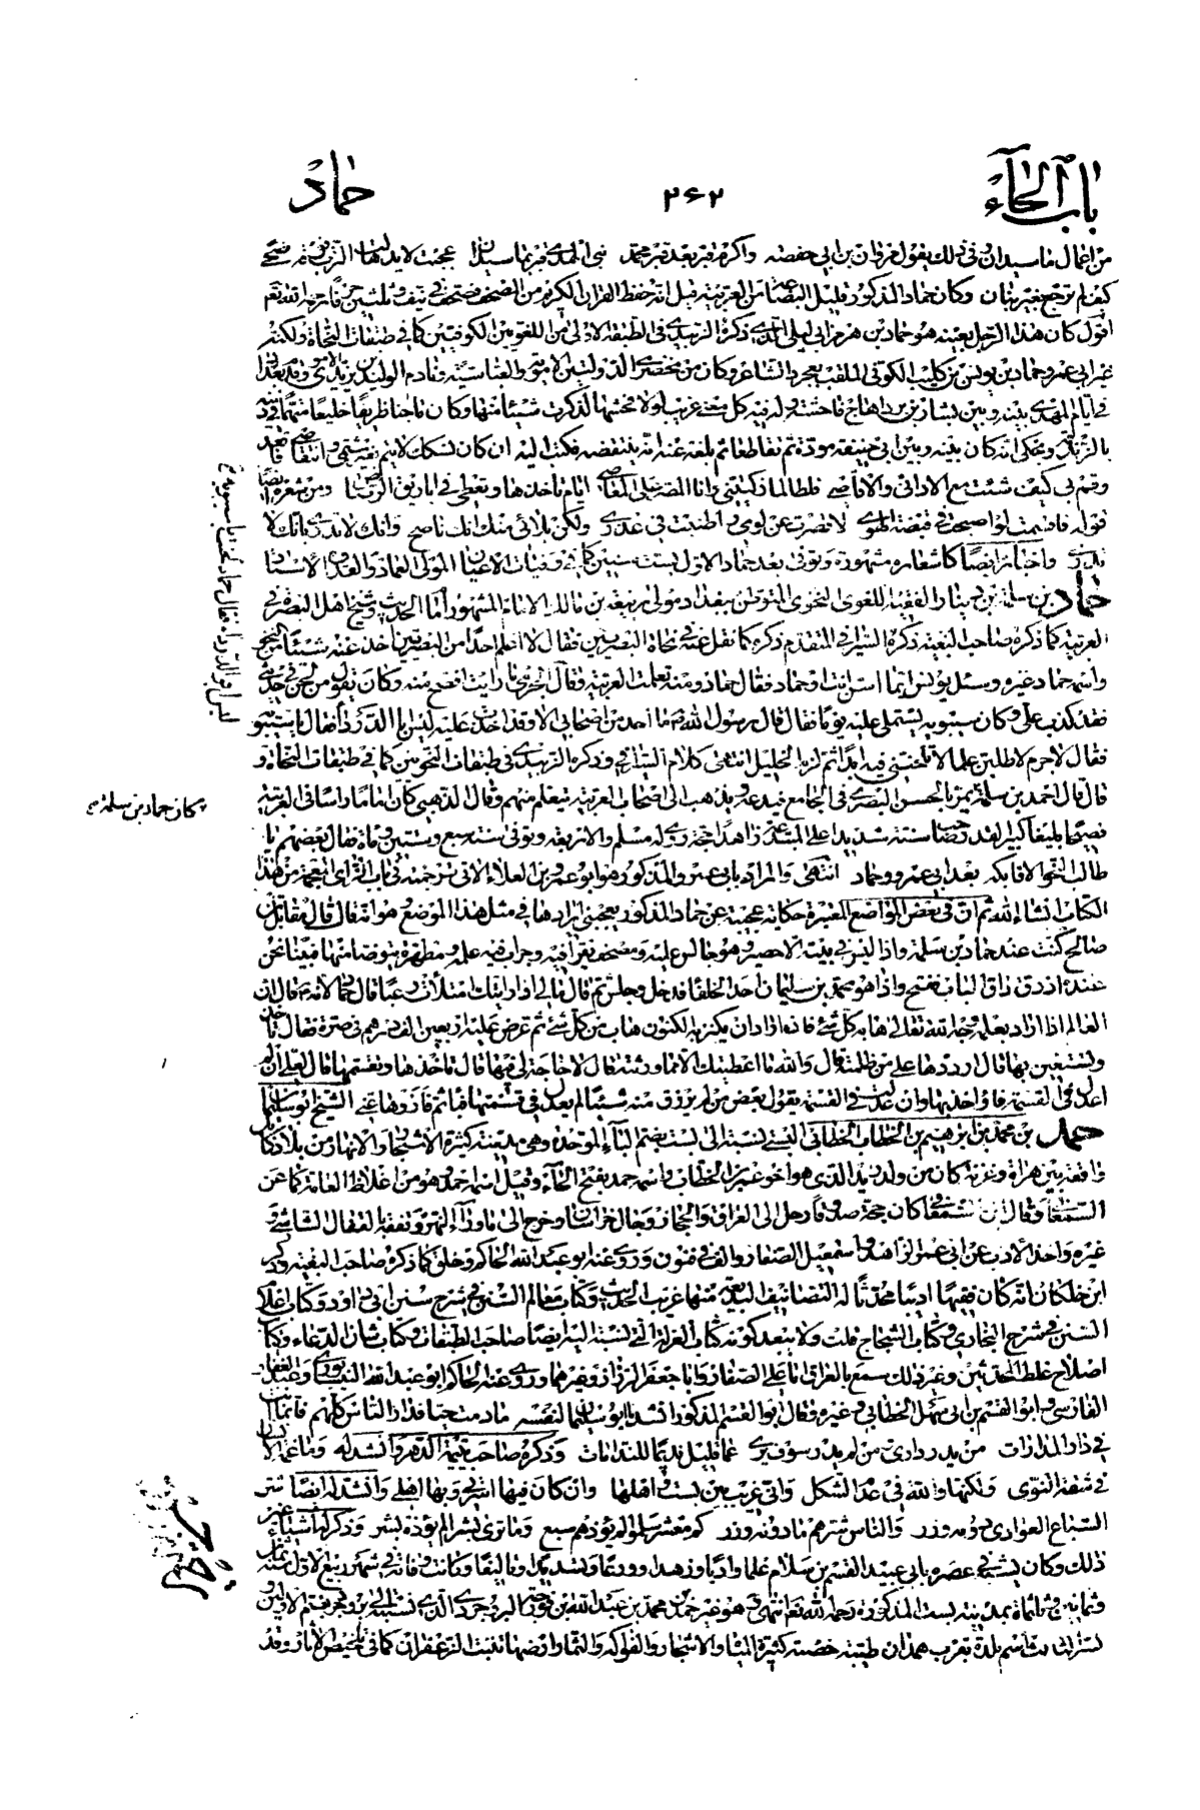 باب الحاء ٢۶٢ حماد
من اعمال ماسبذان وفى ذلك يقول مروان بن ابى حفصة واكرم قبر بعد قبر محمد نبى الهدى قبر بماسبذان عجبت لايد هالت الترب فوقه ضحى
كيف لم ترجع بغير بنان وكان حماد المذكور قليل البضاعة من العربية قيل انه حفظ القران الكريم من المصحف فصحف فى نيف وثلثين حرفا رحمه الله تعالى
اقول كان هذا الرجل بعينه هو حماد بن هرمز ابى ليلى الذى ذكره الزبيدى فى الطبقة الاولى من اللغويين الكوفيين كما فى طبقات النحاة ولكنه
غير ابى عمرو حماد بن يونس بن كليب الكوفى الملقب بعجرد الشاعر وكان من مخضرمى الدولتين الاموية والعباسية ونادم الوليد بن يزيد الاموى وقدم بغداد
فى ايام المهدى بينه وبين بشار بن برد اهاج فاحشة وله فيه كل معنى غريب لولا فحشها لذكرت شيئا منها وكان ماجنا ظريفا خليعا متهما فى دينه
بالزندقة وحكى انه كان بينه وبين ابى حنيفة مودة ثم تقاطعا ثم بلغه عنه انه يتنقصه فكتب اليه ان كان نسكك لا يتم بغير شتمى وانتقاصى فاقعد
وقم بى كيف شئت مع الادانى والاقاصى فلطالما زكيتنى وانا المصر على المعاصى ايام تأخذها وتعطى فى اباريق الرصاص ومن شعره ايضا
قوله فاقسمت لو اصبحت فى قبضة الهوى لاقصرت عن لومى واطنبت فى عذرى ولكن بلائى منك انك ناصح وانك لا تدرى بانك لا
تدرى واخباره ايضا كاشعاره مشهورة وتوفى بعد حماد الاول بست سنين كما فى وفيات الاعيان
حماد بن سلمة بن دينار الفقيه اللغوى النحوى المتوطن ببغداد مولى ربيعة بن مالك الامام المشهور امام الحديث وشيخ اهل البصرة فى
العربية كما ذكره صاحب البغية ذكره السيرافى المتقدم ذكره كما نقل عنه فى نحاة البصريين فقال لا اعلم احدا من البصريين اخذ عنه شيئا من النحو
واسمه حماد غيره وسئل يونس ايما اسن انت او حماد فقال حماد ومنه تعلمت العربية وقال الجرمى ما رايت افصح منه وكان يقول من لحن فى حديثى
فقد كذب على وكان سيبويه يستملى عليه يوما فقال قال رسول الله ص ما احد من اصحابى الا وقد اخذت عليه ليس ابا الدرداء فقال يا سيبويه
فقال لا جرم لاطلبن علما لا تلحننى فيه ابدا ثم لزم الخليل انتهى كلام السيرافى وذكره الزبيدى فى طبقات النحويين كما فى طبقات النحاة و
قال قال احمد بن سلمة يمر بالحسن البصرى فى الجامع فيدعه ويذهب الى اصحاب العربية يتعلم منهم وقال الذهبى كان اماما راسا فى العربية
فصيحا بليغا كبير القدر صاحب سنة شديدا على المبتدعة زاهدا حجة روى له مسلم والاربعة وتوفى سنة سبع وستين ومأة فقال بعضهم يا
طالب النحو الا فابكه بعد ابى عمرو وحماد انتهى والمراد بابى عمرو المذكور هو ابو عمرو بن العلاء الاتى ترجمته فى باب الزاى المعجمة من هذا
الكتاب انشاء الله ثم ان فى بعض المواضع المعتبرة حكاية عجيبة عن حماد المذكور يعجبنى ايرادها فى مثل هذا الموضع وهو انه قال قال مقاتل بن
صالح كنت عند حماد بن سلمة واذا ليس فى بيته الا حصير وهو جالس عليه ومصحف يقرأ فيه وجراب فيه علمه ومطهرة يتوضأ منها فبينا نحن
عنده اذ دق داق الباب ففتح واذا هو محمد بن سليمان احد الخلفاء فدخل وجلس ثم قال مالى اذا رايتك امتلأت رعبا قال حماد لانه ع قال ان
العالم اذا اراد بعلمه وجه الله تعالى هابه كل شئ فان اراد ان يكنز به الكنوز هاب من كل شئ ثم عرض عليه اربعين الف درهم فى صرة فقال تأخذ
وتستعين بها قال ارددها على من ظلمته قال والله ما اعطيتك الا مما ورثته فقال لا حاجة لى فيها قال تأخذها وتقسمها قال لعلى ان لم
اعدل فى القسمة فاؤاخذ بها وان عدلت فى القسمة يقول بعض من لم يرزق منه شيئا لم يعدل فى قسمتها فياثم فازوها عنى الشيخ ابو سليمان
حمد بن محمد بن ابرهيم بن الخطاب الخطابى البستى نسبة الى بست بضم الباء الموحدة وهى مدينة كثيرة الاشجار والانهار من بلاد كابل
واقعة بين هراة وغزنة كان من ولد زيد الذى هو اخو عمر بن الخطاب واسمه حمد بفتح الحاء وقيل اسمه احمد وهو من اغلاط العامة كما عن
السمعانى وقال ابن السمعانى كان حجة صدوقا رحل الى العراق والحجاز وجال خراسان وخرج الى ماوراء النهر وتفقه بالقفال الشاشى و
غيره واخذ الادب عن ابى عمر الزاهد واسمعيل الصفار والف فى فنون وروى عنه ابو عبد الله الحاكم وخلق كما ذكره صاحب البغية وذكر
ابن خلكان انه كان فقيها اديبا محدثا له التصانيف البديعة منها غريب الحديث وكتاب معالم السنن فى شرح سنن ابى داود وكتاب اعلام
السنن فى شرح البخارى وكتاب الشجاج قلت ولا يبعد كونه كتاب العزلة التى نسبه اليه ايضا صاحب الطبقات وكتاب شان الدعاء وكتاب
اصلاح غلط المحدثين وغير ذلك سمع بالعراق ابا على الصفار وابا جعفر الرزاز وغيرهما وروى عنه الحاكم ابو عبد الله النيسابورى وعبد الغفار
الفارسى وابو القسم بن ابى سهل الخطابى وغيره وقال ابو القسم المذكور انشدنا ابو سليمان لنفسه مادمت حيا فدار الناس كلهم فانما انت
فى دار المداراة من يدر دارى ومن لم يدر سوف يرى عما قليل نديما للندامات وذكره صاحب يتيمة الدهر وانشد له وما غمة الانسان
فى شقة النوى ولكنها والله فى عدم الشكل وانى غريب بين بست واهلها وان كان فيها اسرتى وبها اهلى وانشد له ايضا شر
السباع العوادى دونه وزر والناس شرهم مادونه وزر كم معشر سلموا لم يؤذهم سبع وما ترى بشرا لم يؤذه بشر وذكر له اشياء غير
ذلك وكان يشبه فى عصره بابى عبيد القسم بن سلام علما وادبا وزهدا وورعا وتدريسا وتاليفا وكانت وفاته فى شهر ربيع الاول سنة ثمان
وثمانين وثلثمأة بمدينة بست المذكورة رحمه الله تعالى انتهى وهو غير حمد بن محمد بن عبد الله بن البروجردى الذى نسبته الى بروجرد بضم الاولين
اسم بلدة بقرب همدان طيبة خصبة كثيرة المياه والاشجار والفواكه والثمار وارضها تنبت الزعفران كما فى تلخيص الاثار وقد
كان حماد بن سلمة
ليس ابو الدرداء فقال حماد لحنت يا سيبويه